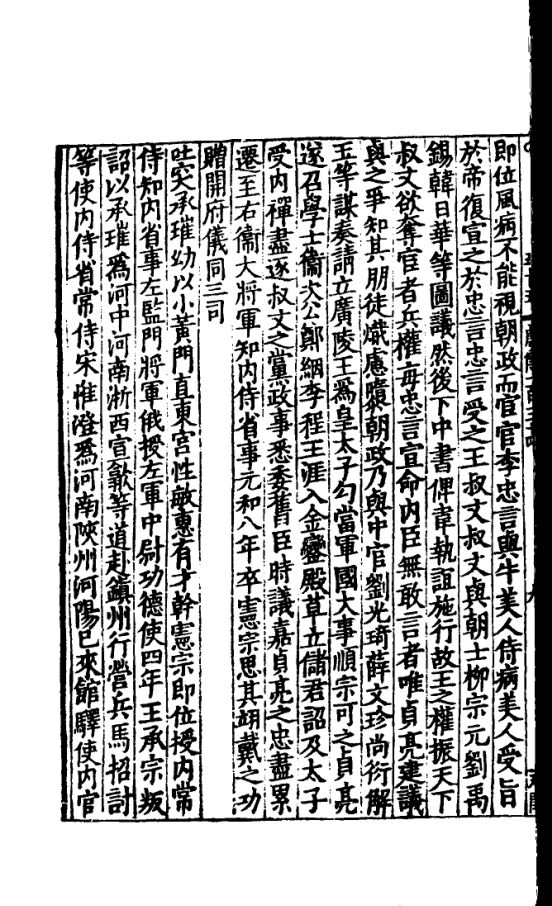 即位風病不能視朝政而宦官李忠言與牛美人侍病美人受旨
於帝復宣之於忠言忠言受之王叔文叔文與朝士柳宗元劉禹
錫韓日華等圖議然後下中書俾韋執誼施行故王之權振天下
叔文欲奪宦者兵權每忠言宣命内臣無敢言者唯貞亮建議
與之爭知其朋徒熾慮隳朝政乃與中官劉光琦薛文珍尚衍解
玉等謀奏請立廣陵王爲皇太子勾當軍國大事順宗可之貞亮
遂召學士衞次公鄭絪李程王涯入金鑾殿草立儲君詔及太子
受内禪盡逐叔文之黨政事悉委舊臣時議嘉貞亮之忠盡累
遷至右衞大將軍知内侍省事元和八年卒憲宗思其翊戴之功
贈開府儀同三司
吐突承璀幼以小黃門直東宮性敏惠有才幹憲宗即位授内常
侍知内省事左監門將軍俄授左軍中尉功德使四年王承宗叛
詔以承璀爲河中河南浙西宣歙等道赴鎭州行營兵馬招討
等使内侍省常侍宋惟澄爲河南陝州河陽已來館驛使内官